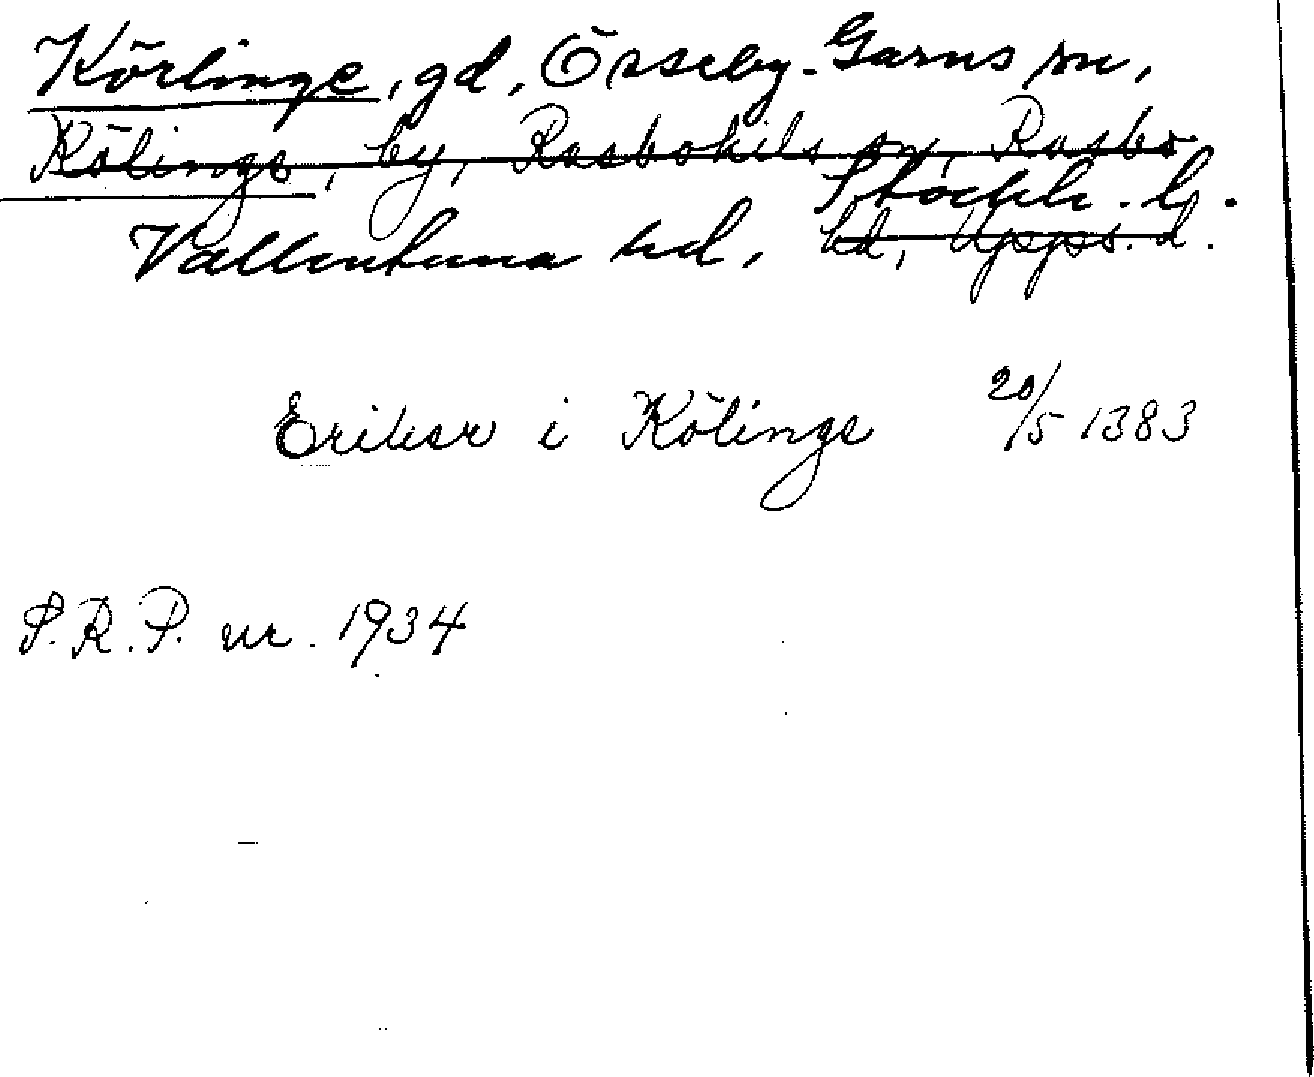 Körlinge, gd, Össeby-Garns sn,
Kölinge, by, Rasbokils sn, Rasbo
Stockh. l.
Vallentuna hd, hd, Upps. l.
Erikær i Kölinge 20/5 1383
S.R.P. nr. 1934